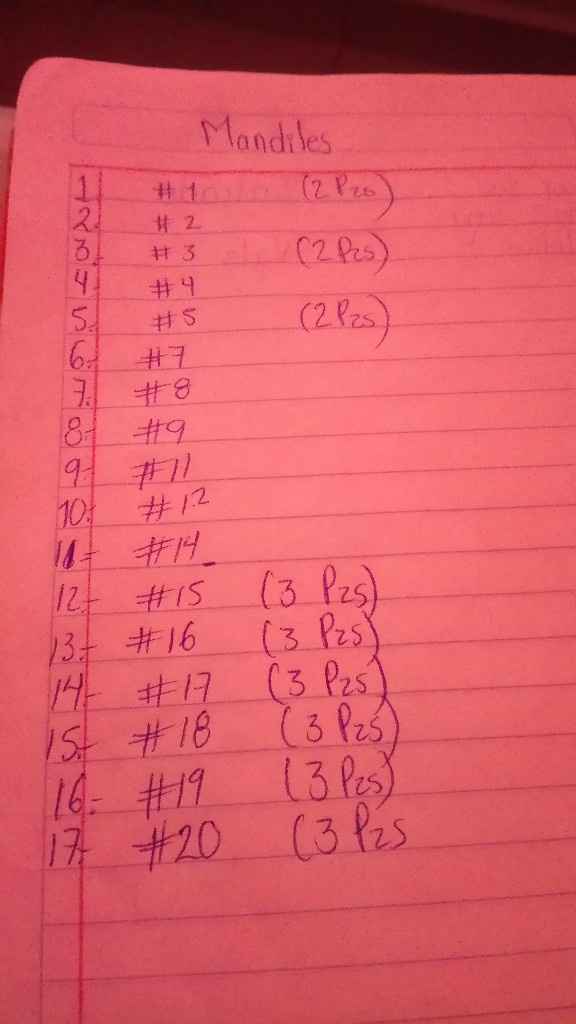 Mandiles
1. #1 (2 Pzs)
2. #2
3. #3 (2 Pzs)
4. #4
5.- #5 (2 Pzs)
6.- #7
7.- #8
8.- #9
9.- #11
10.- #12
11.- #14
12.- #15 (3 Pzs)
13.- #16 (3 Pzs)
14.- #17 (3 Pzs)
15.- #18 (3 Pzs)
16.- #19 (3 Pzs)
17.- #20 (3 Pzs